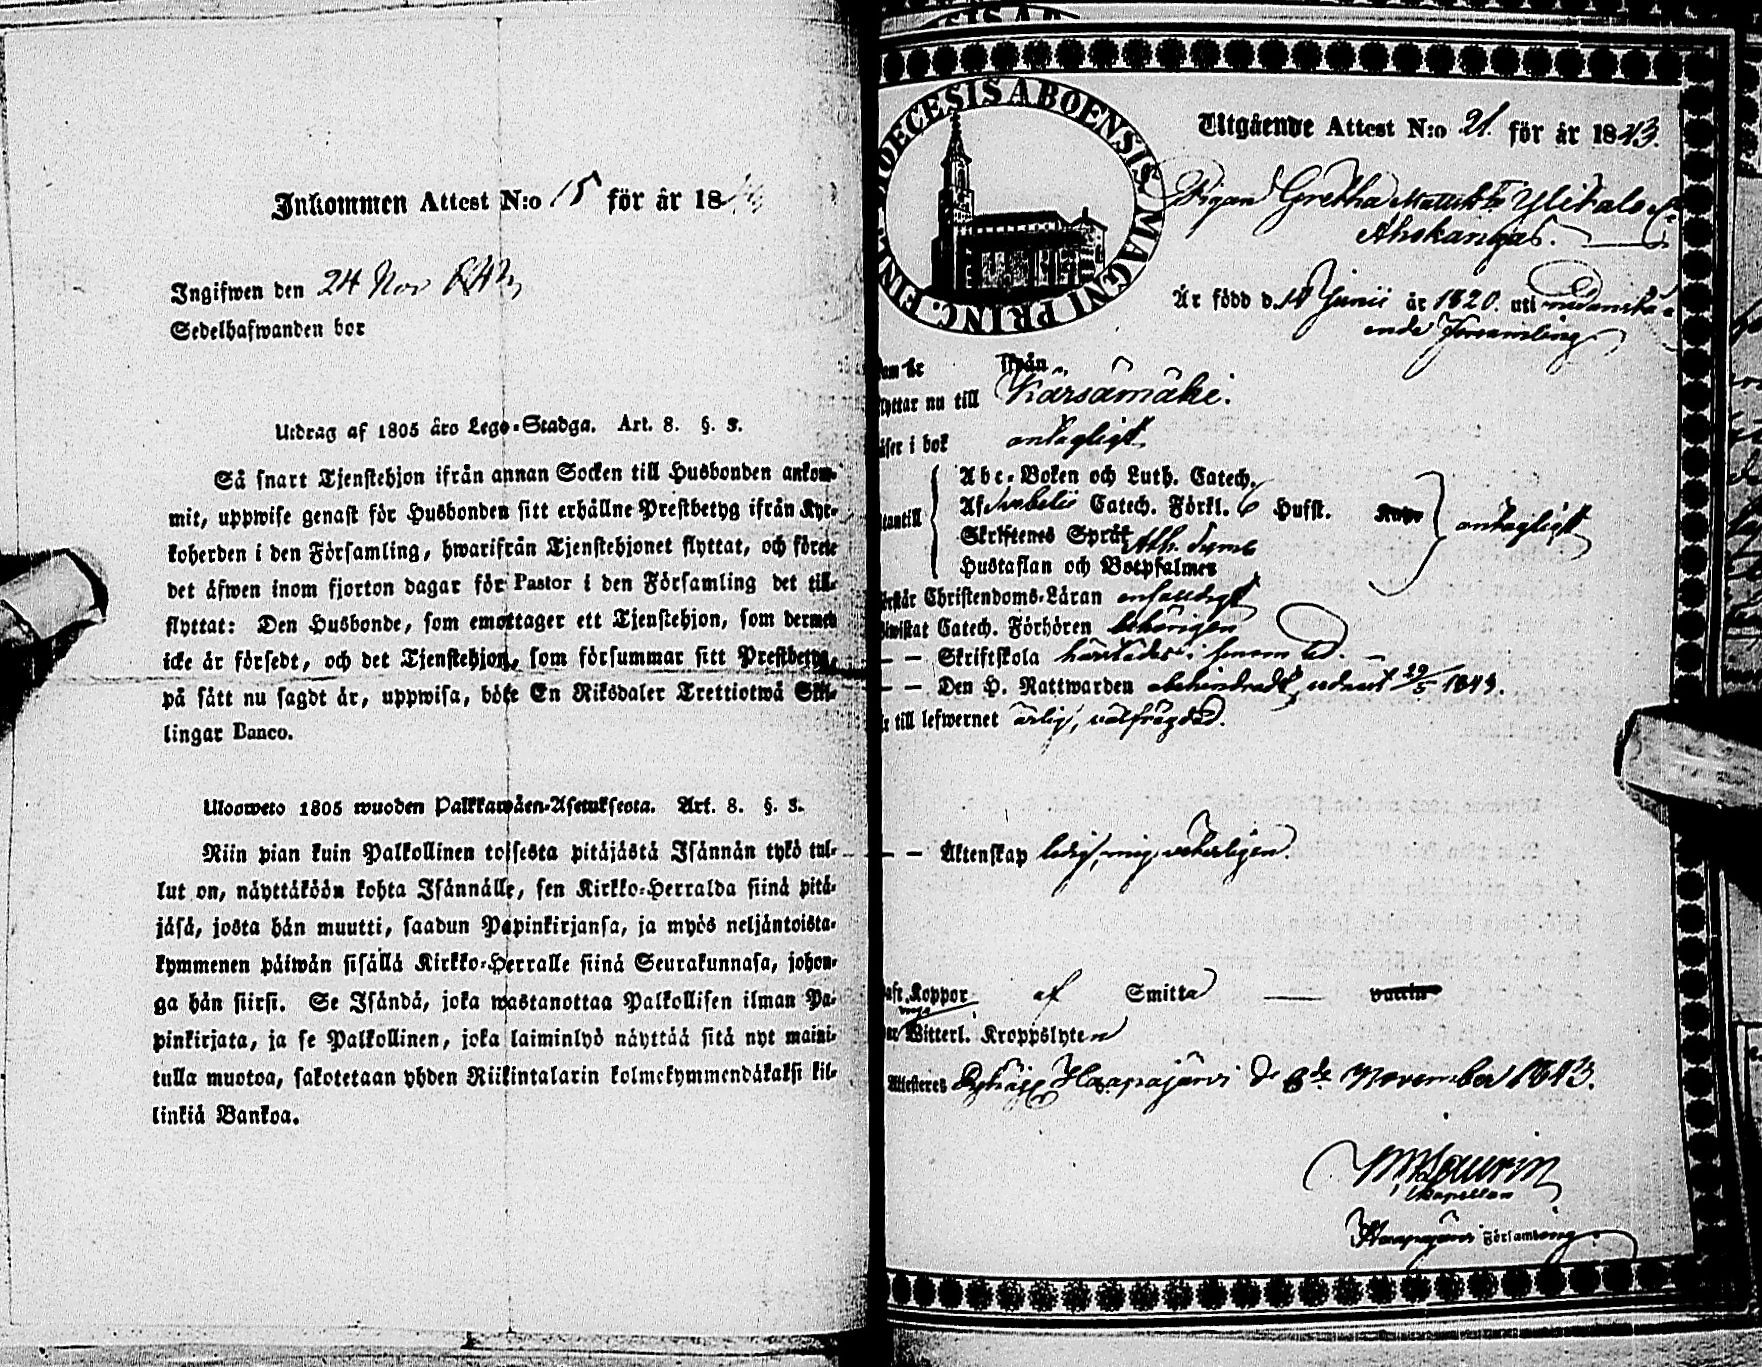 Inkommen Attest N:o 15 för år 18
Ingifwen den 24 Nov
Sedelhafwanden bor
Utdrag af 1805 års Lego-Stadga. Art. 8. §. 3.
Så snart Tjenstehjon ifrån annan Socken till Husbonden ankom-
mit, uppwise genast för Husbonden sitt erhållne Prestbetyg ifrån Kyr-
koherden i den Församling, hwarifrån Tjenstehjonet flyttat, och förete
det äfwen inom fjorton dagar för Pastor i den Församling det till-
flyttat: Den Husbonde, som emottager ett Tjenstehjon, som dermed
icke är försedt, och det Tjenstehjon, som försummar sitt Prestbetyg,
på sätt nu sagdt är, uppwisa, böte En Riksdaler Trettiotwå Skil-
lingar Banco.
Ulosweto 1805 wuoden Palkkawäen-Asetuksesta. Art. 8. §. 3.
Niin pian kuin Palkollinen toisesta pitäjästä Isännän tykö tul-
lut on, näyttäköön kohta Isännälle, sen Kirkko-Herralda siinä pitä-
jäsä, josta hän muutti, saadun Papinkirjansa, ja myös neljäntoista-
kymmenen päiwän sisällä Kirkko-Herralle siinä Seurakunnasa, johon-
ga hän siirsi. Se Isändä, joka wastanottaa Palkollisen ilman Pa-
pinkirjata, ja se Palkollinen, joka laiminlyö näyttää sitä nyt maini-
tulla muotoa, sakotetaan yhden Riikintalarin kolmekymmendäkaksi kil-
linkiä Bankoa.
DIOECESIS ABOENSIS MAGNI PRINC. FINL.
Utgående Attest N:o 21. för år 1843.
Pigan Gretha Ylitalo
Ahokangas.
Är född d. 18 Junii år 1820. uti nedanstå-
ende Församling
från
flyttar nu till Kärsämäki.
läser i bok antagligt
Abc-Boken och Luth. Catech.
Af Svebelii Catech. Förkl. 6 Hufst.
utantill antagligt
Skriftenes Språk Ath. Symb
Hustaflan och Botpsalmer
förstår Christendoms-Läran enfaldigt
Catech. Förhören behörigen
— — Skriftskola i sinom tid.
— — Den H. Nattwarden obehindradt, sednast 29/5 1843.
är till lefwernet ärlig, välfrägdad.
— — Äktenskap ledig, mig veterligen.
haft Koppor af Smitta — vaccin
Witterl. Kroppslyten
Attesteres Pyhäj. Haapajärvi d. 6de November 1843.
Laurin
Kapellan
Haapajärvi Församling.